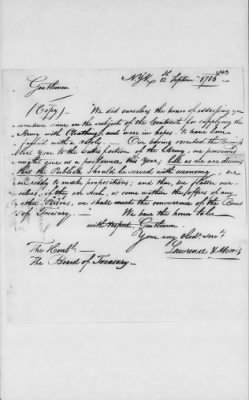 NYk 12th Septem 1785
Gentlemen
(Copy) We did ourselves the honor of addressing you
sometime since on the subject of the Contract for supplying the
Army with Cloathing, and were in hopes to have been
favored with a reply. Our having executed the Business
last year to the satisfaction of the Army, we presumed
might give us a preference this Year; But as we are desirous
that the Publick should be served with œconomy, we
are ready to make propositions; and then, we flatter our-
selves, if they are such, as come within the offers of any
other Persons, we shall meet the concurrence of the Board
of Treasury. We have the honor to be
with respect Gentlemen
Your very Obedt. Servts.
The Honble.
Lawrence &
The Board of Treasury